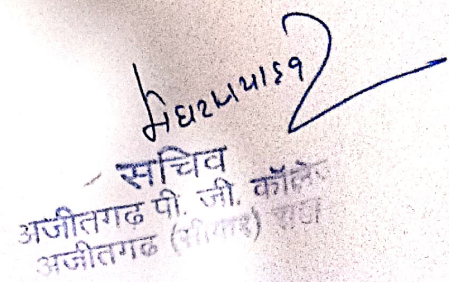 सचिव
अजीतगढ पी. जी. कॉलेज
अजीतगढ (सीकर) राज